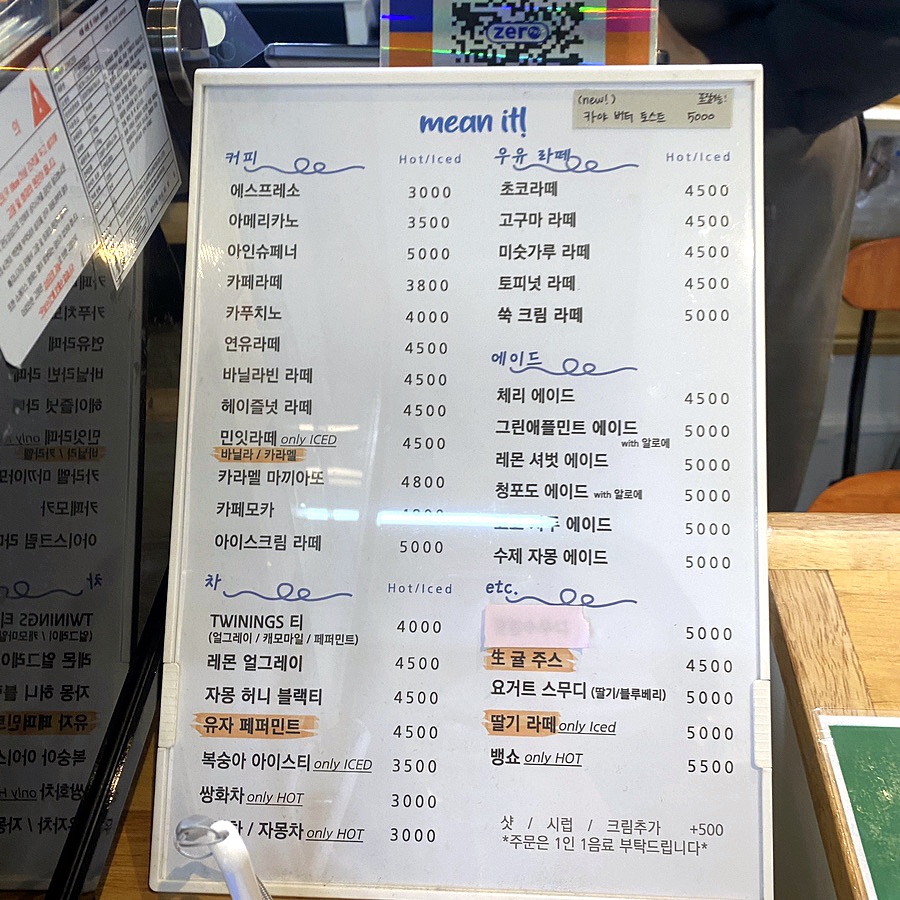 zero
mean it!
(new!)
카야 버터 토스트 5000
커피 Hot/Iced
에스프레소 3000
아메리카노 3500
아인슈페너 5000
카페라떼 3800
카푸치노 4000
연유라떼 4500
바닐라빈 라떼 4500
헤이즐넛 라떼 4500
민잇라떼 only ICED 4500
바닐라 / 카라멜
카라멜 마끼아또 4800
카페모카
아이스크림 라떼 5000
차 Hot/Iced
TWININGS 티 4000
(얼그레이 / 캐모마일 / 페퍼민트)
레몬 얼그레이 4500
자몽 허니 블랙티 4500
유자 페퍼민트 4500
복숭아 아이스티 only ICED 3500
쌍화차 only HOT 3000
/ 자몽차 only HOT 3000
우유 라떼 Hot/Iced
초코라떼 4500
고구마 라떼 4500
미숫가루 라떼 4500
토피넛 라떼 4500
쑥 크림 라떼 5000
에이드
체리 에이드 4500
그린애플민트 에이드 5000
with 알로에
레몬 셔벗 에이드 5000
청포도 에이드 with 알로에 5000
에이드 5000
수제 자몽 에이드 5000
etc.
5000
生 귤 주스 4500
요거트 스무디 (딸기/블루베리) 5000
딸기 라떼 only Iced 5000
뱅쇼 only HOT 5500
샷 / 시럽 / 크림추가 +500
*주문은 1인 1음료 부탁드립니다*